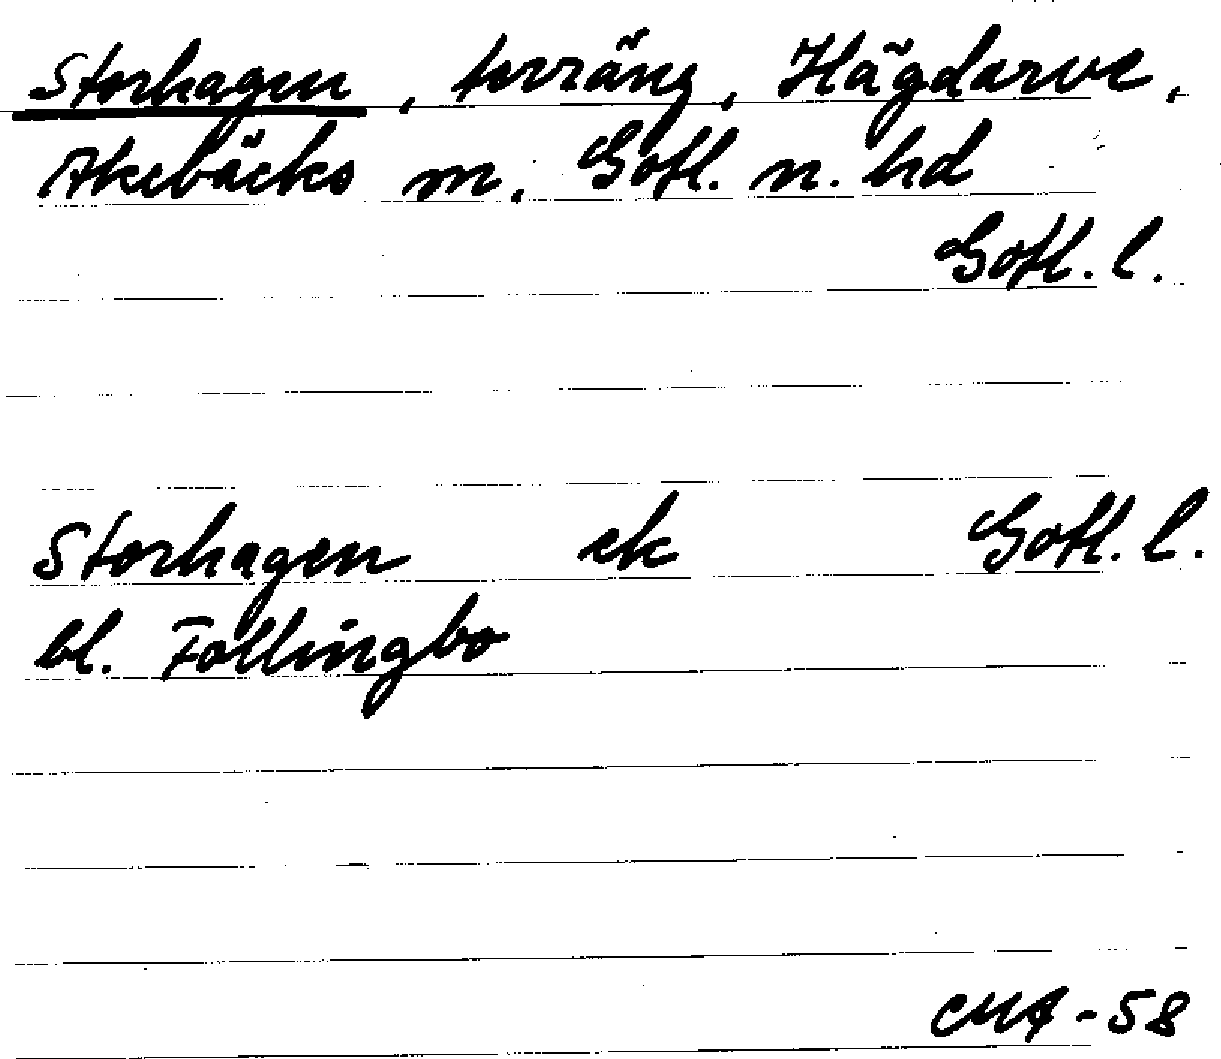 Storhagen, terräng, Hägdarve,
Akebäcks m. Gotl. n. hd
Gotl. l.
Storhagen ek Gotl. l.
bl. Follingbo
CMA-58